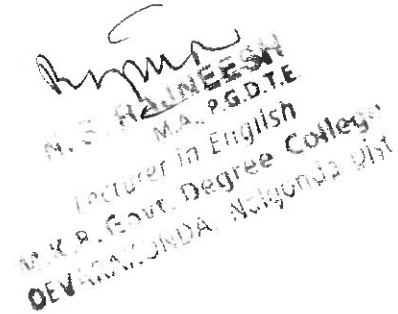 N. S. RAJNEESH
M.A., P.G.D.T.E
Lecturer in English
M.K.R. Govt. Degree College
DEVARAKONDA, Nalgonda Dist